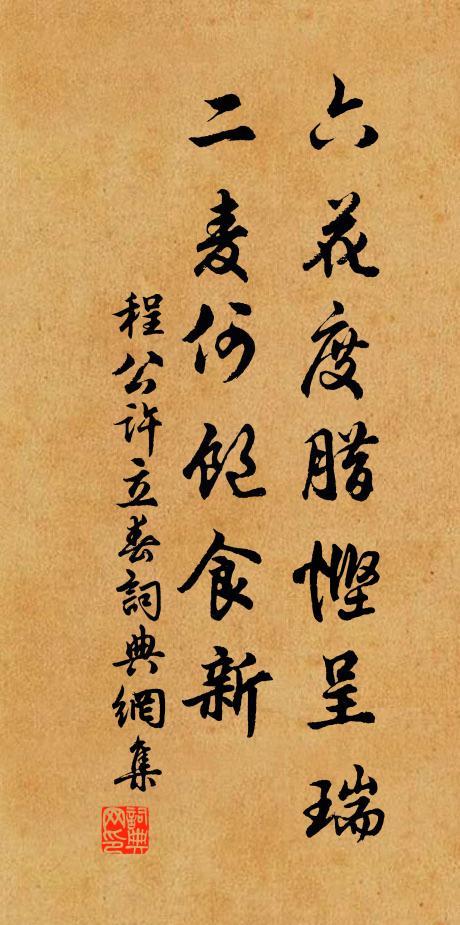 六花度腊悭呈瑞
二麦何饱食新
程公许立春詞典網集
詞典网印